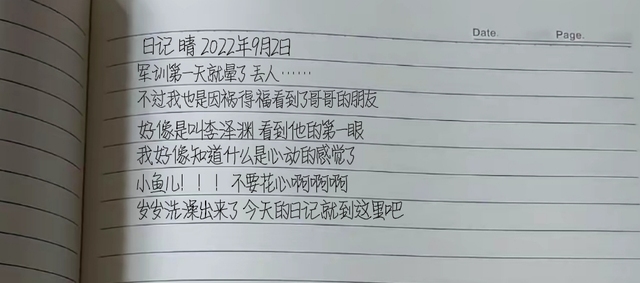 Date.
Page.
日记 晴 2022年9月2日
军训第一天就晕了 丢人……
不过我也是因祸得福看到了哥哥的朋友
好像是叫李泽渊 看到他的第一眼
我好像知道什么是心动的感觉了
小鱼儿！！！ 不要花心啊啊啊
岁岁洗澡出来了 今天的日记就到这里吧